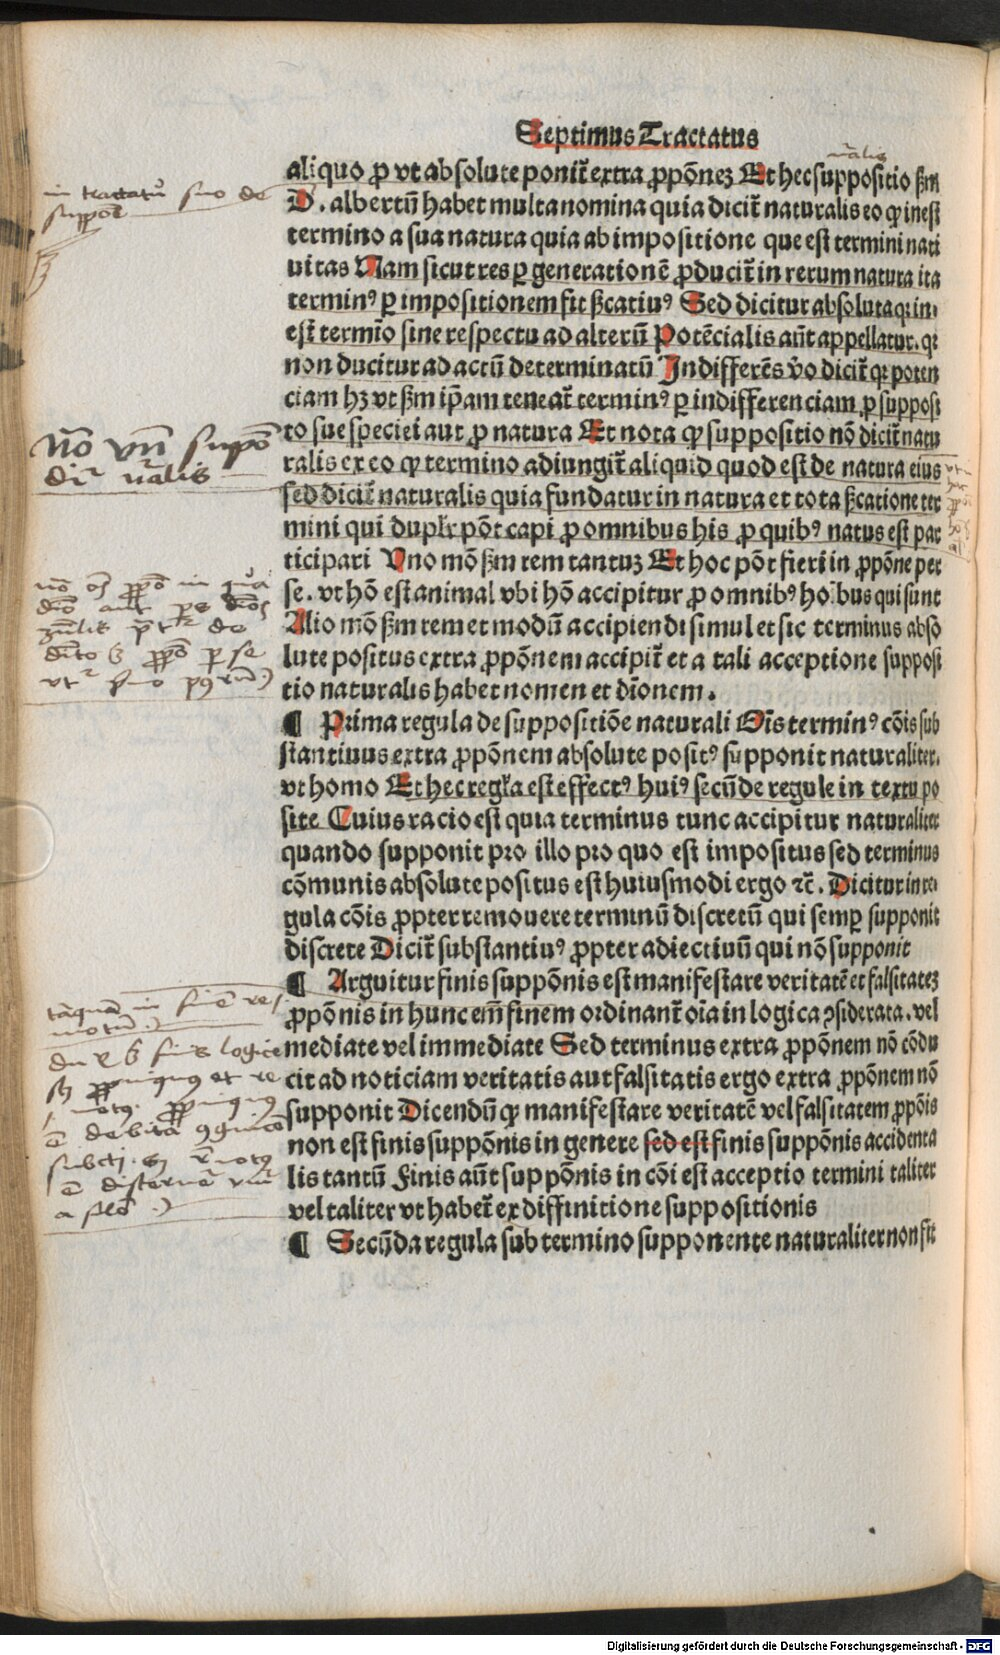 Septimus Tractatus
aliquo ꝓ vt absolute ponit᷑ extra ꝓpōneʒ Et hec suppositio ẜm
D. albertū habet multa nomina quia dicit᷑ naturalis eo ꝙ inest
termino a sua natura quia ab impositione que est termini nati
uitas Nam sicut res ꝑ generationē ꝓducit᷑ in rerum natura ita
terminꝰ ꝑ impositionem fit ẜcatiuꝰ Sed dicitur absoluta qꝛ in⸗
est termīo sine respectu ad alterū Potēcialis aūt appellatur. qꝛ
non ducitur ad actū determinatū Indifferēs v̄o dicit᷑ qꝛ poten
ciam hꝫ vt ẜm ip̄am teneat᷑ terminꝰ ꝑ indifferenciam ꝓ supposi
to sue speciei aut ꝓ natura Et nota ꝙ suppositio nō dicit᷑ natu
ralis ex eo ꝙ termino adiungit᷑ aliquid quod est de natura eius
sed dicit᷑ naturalis quia fundatur in natura et tota ẜcatione ter
mini qui duplr̄ pōt capi ꝓ omnibus his ꝓ quibꝰ natus est par
ticipari Uno mō ẜm rem tantuʒ Et hoc pōt fieri in ꝓpōne per
se. vt hō est animal vbi hō accipitur ꝓ omnibꝰ hoībus qui sunt
Alio mō ẜm rem et modū accipiendi simul et sic terminus abso
lute positus extra ꝓpōnem accipit᷑ et a tali acceptione supposi
tio naturalis habet nomen et dīonem.
¶ Prima regula de suppositiōe naturali Oīs terminꝰ cōis sub
stantiuus extra ꝓpōnem absolute positꝰ supponit naturaliter.
vt homo Et hec regl̄a est effectꝰ huiꝰ secūde regule in textu po
site Cuius racio est quia terminus tunc accipitur naturaliter
quando supponit pro illo pro quo est impositus sed terminus
cōmunis absolute positus est huiusmodi ergo ⁊c̄. Dicitur in re⸗
gula cōis ꝓpter remouere terminū discretū qui semꝑ supponit
discrete Dicit᷑ substantiuꝰ ꝓpter adiectiuū qui nō supponit
¶ Arguitur finis suppōnis est manifestare veritatē et falsitateʒ
ꝓpōnis in hunc em̄ finem ordinant᷑ oīa in logica ꝯsiderata. vel
mediate vel immediate Sed terminus extra ꝓpōnem nō cōdu
cit ad noticiam veritatis aut falsitatis ergo extra ꝓpōnem nō
supponit Dicendū ꝙ manifestare veritatē vel falsitatem ꝓpōis
non est finis suppōnis in genere sed est finis suppōnis accidenta
lis tantū Finis aūt suppōnis in cōi est acceptio termini taliter
vel taliter vt habet᷑ ex diffinitione suppositionis
¶ Secūda regula sub termino supponente naturaliter non fit
in tractatu suo de
suppōe
Digitalisierung gefördert durch die Deutsche Forschungsgemeinschaft - DFG